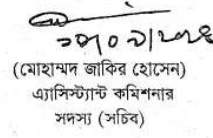 (মোহাম্মদ জাকির হোসেন)
এ্যাসিস্ট্যান্ট কমিশনার
সদস্য (সচিব)